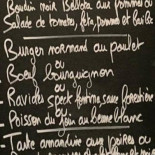 Boudin noir Bellota aux pommes ou
Salade de tomates, féta, pommes et basilic
Burger normand au poulet
ou
Boeuf bourguignon
ou
- Ravioles speck femme, sauce forestière
Poisson du jour au beurre blanc
- Tarte amandine aux poires ou